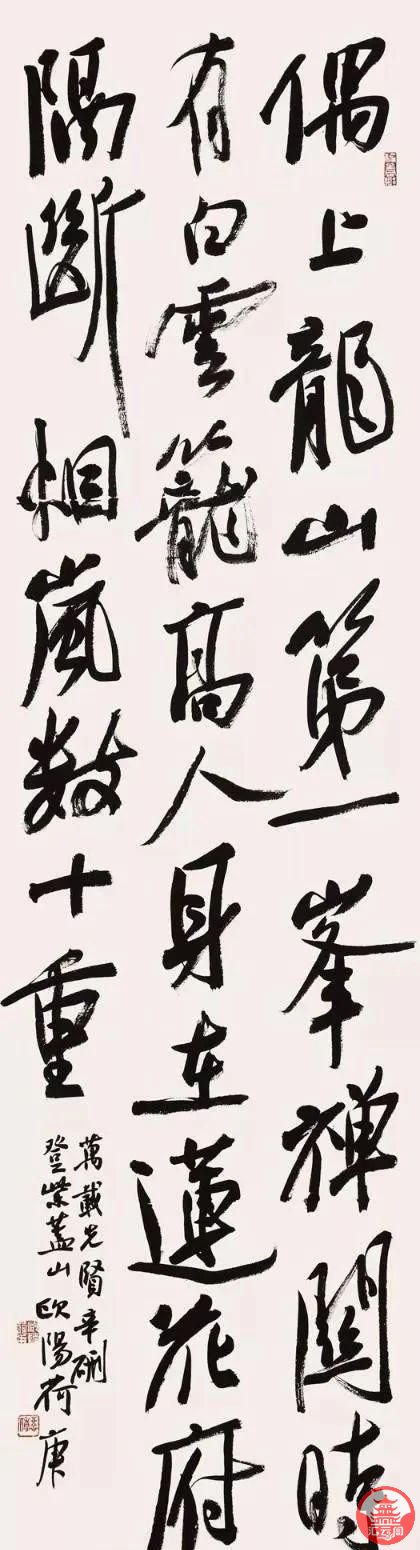 偶上龍山第一峯禅關時
有白雲籠高人身在蓮花府
隔断烟嵐数十重
萬載先賢辛硎
登紫蓋山欧陽荷庚
汇云间